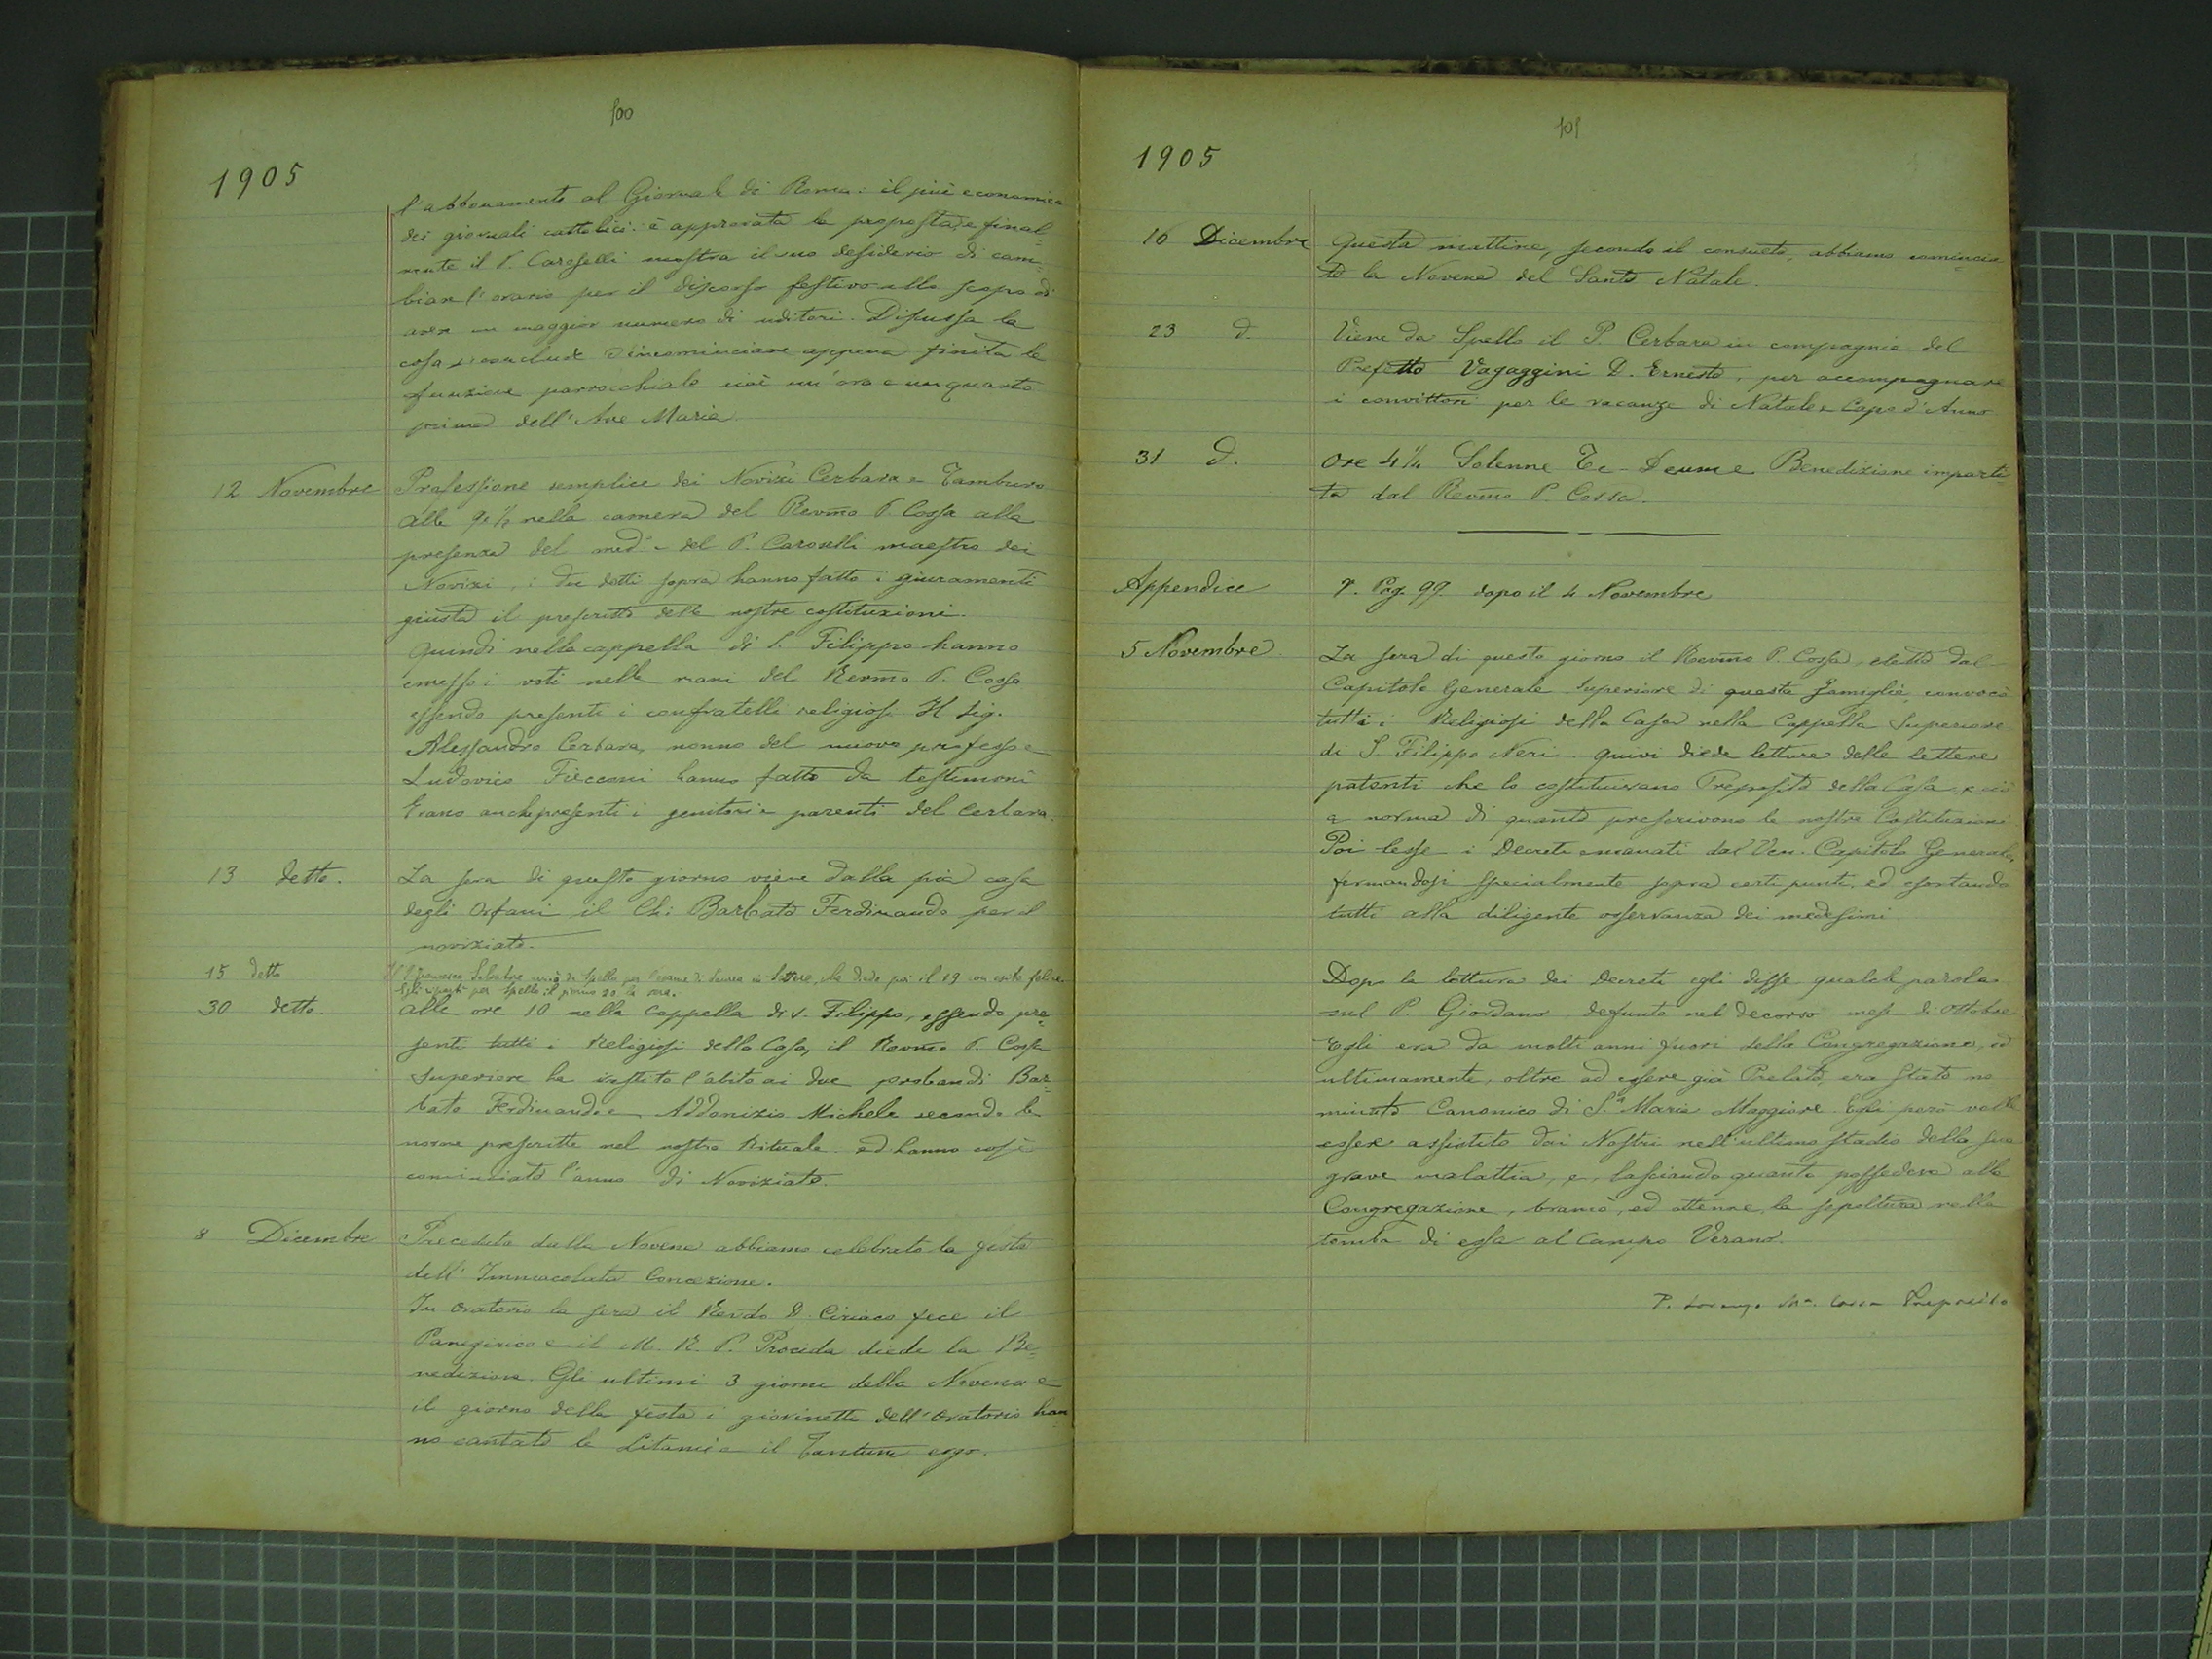 100
1905
l'abbonamento al Giornale di Roma: il più economico
dei giornali cattolici: è approvata la proposta, e final=
mente il P. Caroselli mostra il suo desiderio di cam=
biare l'orario per il discorso festivo allo scopo di
avere un maggior numero di uditori. Discussa la
cosa si conclude d'incominciare appena finita la
funzione parrocchiale cioè un'ora e un quarto
prima dell'Ave Maria.
12 Novembre Professione semplice dei Novizi Cerbara e Tamburo
alle 9 e ½ nella camera del Revm̃o P. Cossa alla
presenza del med.º e del P. Caroselli maestro dei
Novizi, i due detti sopra hanno fatto i giuramenti
giusta il prescritto delle nostre costituzioni.
Quindi nella cappella di S. Filippo hanno
emesso i voti nelle mani del Revm̃o P. Cossa
essendo presenti i confratelli religiosi. Il Sig.
Alessandro Cerbara, nonno del nuovo professo e
Ludovico Fiecconi hanno fatto da testimoni
Erano anche presenti i genitori e parenti del Cerbara.
13 detto. La sera di questo giorno viene dalla pia casa
degli Orfani il Ch: Barbato Ferdinando per il
noviziato.
15 detto Il P. Salvatore arrivò da Spello per l'esame di laurea in Lettere, che diede poi il 19 con esito felice.
Egli ripartì per Spello il giorno 20 la sera.
30 detto. alle ore 10 nella Cappella di S. Filippo, essendo pre=
senti tutti i Religiosi della Casa, il Revm̃o P. Cossa
Superiore ha vestito l'abito ai due probandi Bar=
bato Ferdinando e Addonizio Michele secondo le
norme prescritte nel nostro Rituale ed hanno così
cominciato l'anno di Noviziato.
8 Dicembre Preceduta dalla Novena abbiamo celebrato la festa
dell'Immacolata Concezione.
In Oratorio la sera il Revdo D. Ciriaco fece il
Panegirico e il M. R. P. Procida diede la Be=
nedizione. Gli ultimi 3 giorni della Novena e
il giorno della festa i giovinetti dell'Oratorio han
no cantato le Litanie e il Tantum ergo.
101
1905
16 Dicembre Questa mattina, secondo il consueto, abbiamo comincia
to la Novena del Santo Natale.
23 d. Viene da Spello il P. Cerbara in compagnia del
Prefetto Vagaggini D. Ernesto, per accompagnare
i convittori per le vacanze di Natale e Capo d'Anno
31 d. Ore 4 ¼ Solenne Te-Deum e Benedizione imparti
ta dal Revm̃o P. Cossa.
Appendice V. Pag. 99 dopo il 4 Novembre
5 Novembre. La sera di questo giorno il Revm̃o P. Cossa, eletto dal
Capitolo Generale Superiore di questa famiglia, convocò
tutti i Religiosi della Casa nella Cappella Superiore
di S. Filippo Neri. Quivi diede lettura delle lettere
patenti che lo costituivano Preposito della Casa, e ciò
a norma di quanto prescrivono le nostre Costituzioni.
Poi lesse i Decreti emanati dal Ven. Capitolo Generale,
fermandosi specialmente sopra certi punti, ed esortando
tutti alla diligente osservanza dei medesimi.
Dopo la lettura dei Decreti egli disse qualche parola
sul P. Giordano defunto nel decorso mese di Ottobre
Egli era da molti anni fuori della Congregazione, ed
ultimamente, oltre ad essere già Prelato, era stato no
minato Canonico di S.ª Maria Maggiore. Egli però volle
essere assistito dai Nostri nell'ultimo stadio della sua
grave malattia, e, lasciando quanto possedeva alla
Congregazione, bramò, ed ottenne, la sepoltura nella
tomba di essa al Campo Verano.
P. Lorenzo Mª. Cossa Preposito